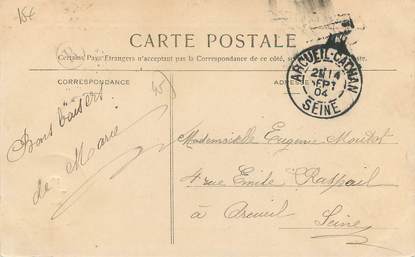 15€
CARTE POSTALE
Certains Pays Etrangers n'acceptant pas la Correspondance de ce côté, se
CORRESPONDANCE
ADRESSE
ARCUEIL-CACHAN
SEPT
04
SEINE
Bons baisers
de Marie
Mademoiselle Eugénie
4 rue Emile Raspail
à Arcueil
Seine